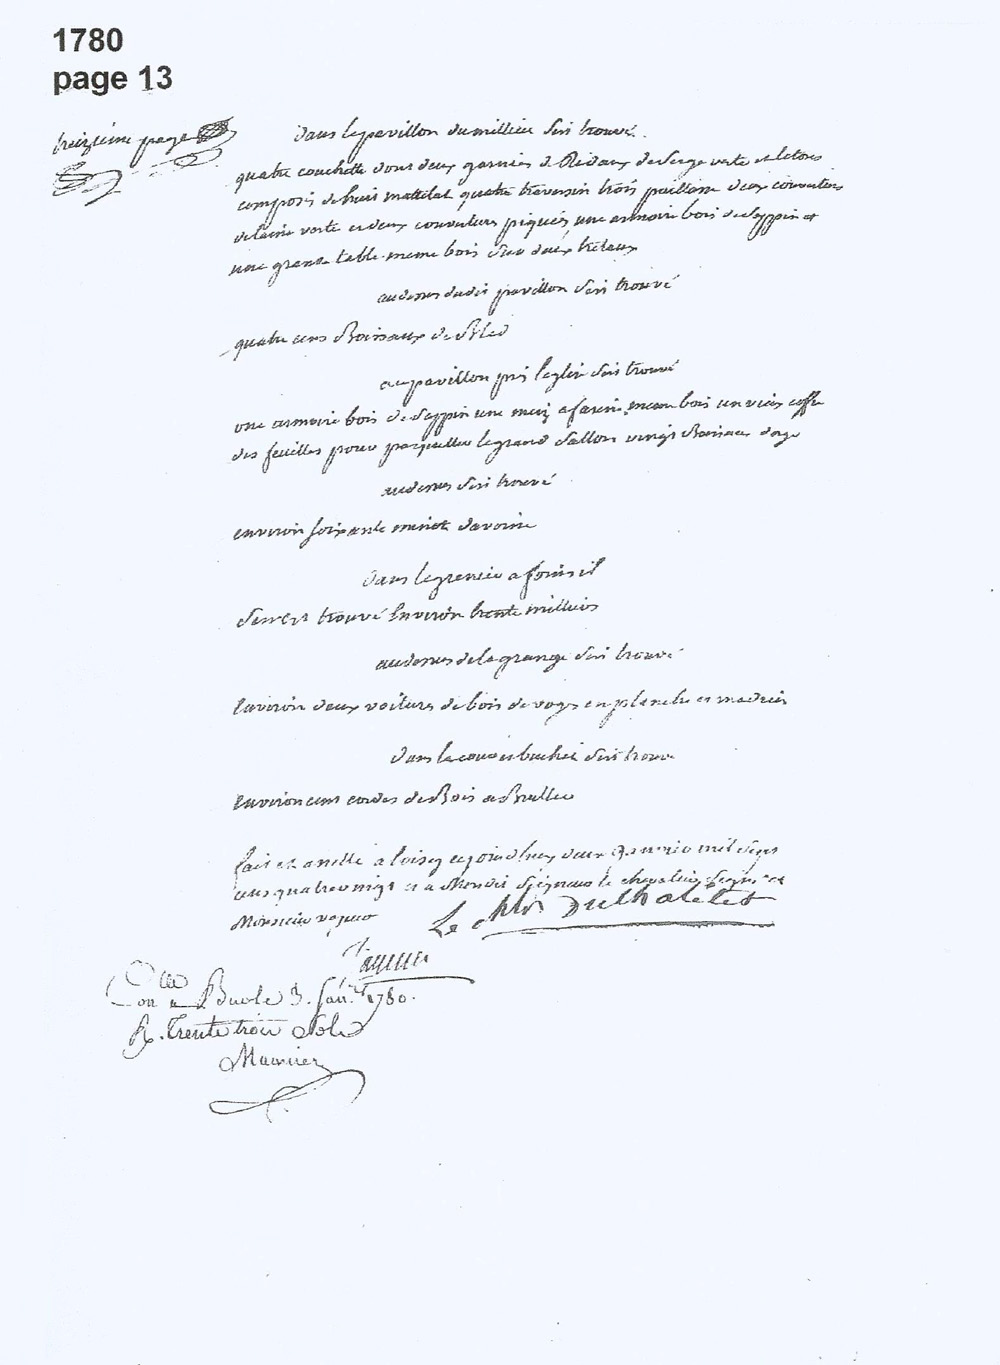 1780
page 13
treizieme page
dans le pavillon du millieu s'est trouvé
quatre couchette dont deux garnies de Rideaux de serge verte et letous
composés de huit mattelat quatre traversin trois paillasse deux couvertures
de laine verte et deux couverture piqués, une armoire bois de sappin et
une grande table meme bois et deux tréteaux
audessus dudit pavillon s'est trouvé
quatre cens Boissaux de Bled
au pavillon près leglise s'est trouvé
une armoire bois de sappin une a farine meme bois un vieux coffre
des feuilles pour parqueller le grand sallon vingt Boisseaux dorge
audessus s'est trouvé
environ soixante minot davoine
dans le grenier a foin s il
s'en est trouvé Environ trente milliers
audessus de la grange s'est trouvé
Environ deux voitures de bois de voges en planche et madriers
dans la cour s'est trouvé
Environ cent cordes de Bois a Bruller
fait et aretté a loisey cejourd'huy deux janvier mil sept
cens quatrevingt et a mondit seigneur le chevalier signé et
Monsieur
Le Duchatelet
3. janr. 1780.
R. Trente trois sols